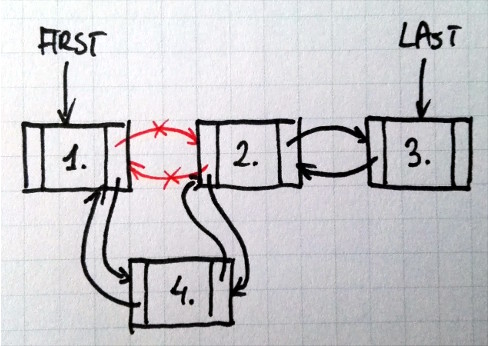 FIRST
LAST
1.
2.
3.
4.